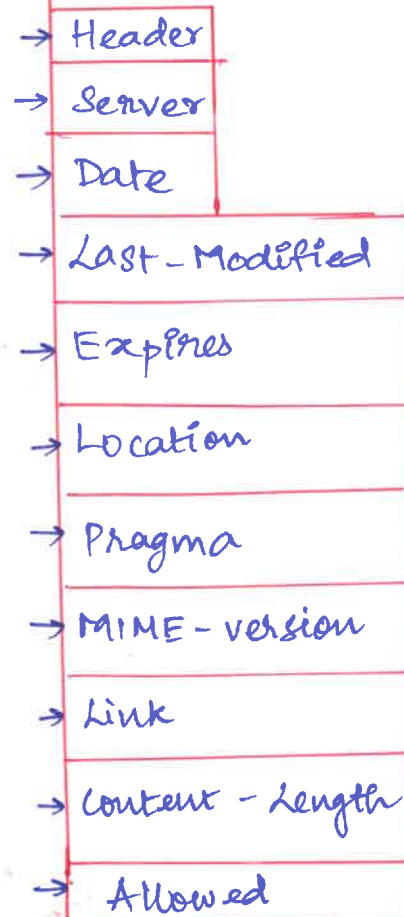 → Header
→ Server
→ Date
→ Last-Modified
→ Expires
→ Location
→ Pragma
→ MIME-version
→ Link
→ Content-Length
→ Allowed